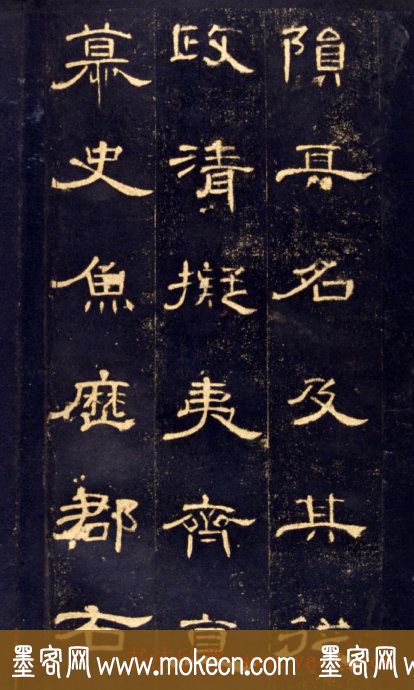 隕其名及其從
政清擬夷齊直
慕史魚歷郡右
墨客网 www.mokecn.com 墨客网